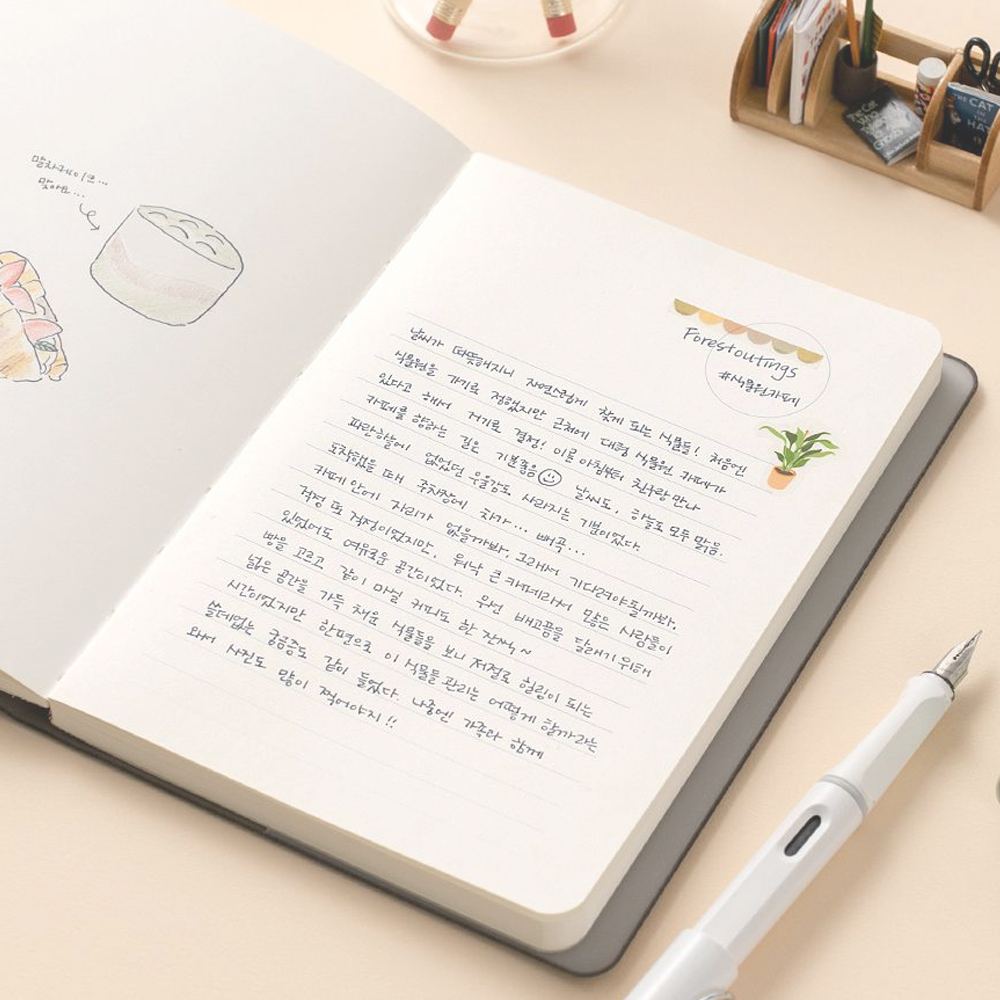 말차케이크...
맞아요...
Forest outings
#식물원카페
날씨가 따뜻해지니 자연스럽게 찾게 되는 식물들! 처음엔
식물원을 가기로 정했지만 근처에 대형 식물원 카페가
있다고 해서 거기로 결정! 이른 아침부터 친구랑 만나
카페를 향하는 길은 기분좋음 날씨도, 하늘도 모두 맑음.
파란하늘에 없었던 우울감도 사라지는 기분이었다.
도착했을 때 주차장에 차가... 빼곡...
카페 안에 자리가 없을까봐, 그래서 기다려야 될까봐,
걱정 또 걱정이었지만, 워낙 큰 카페라서 많은 사람들이
있었어도 여유로운 공간이었다. 우선 배고픔을 달래기 위해
빵을 고르고 같이 마실 커피도 한 잔씩~
넓은 공간을 가득 채운 식물들을 보니 저절로 힐링이 되는
시간이었지만 한편으로 이 식물들 관리는 어떻게 할까라는
쓸데없는 궁금증도 같이 들었다. 나중엔 가족과 함께
와서 사진도 많이 찍어야지!!
The Cat Who
THE CAT
IN THE
HAT